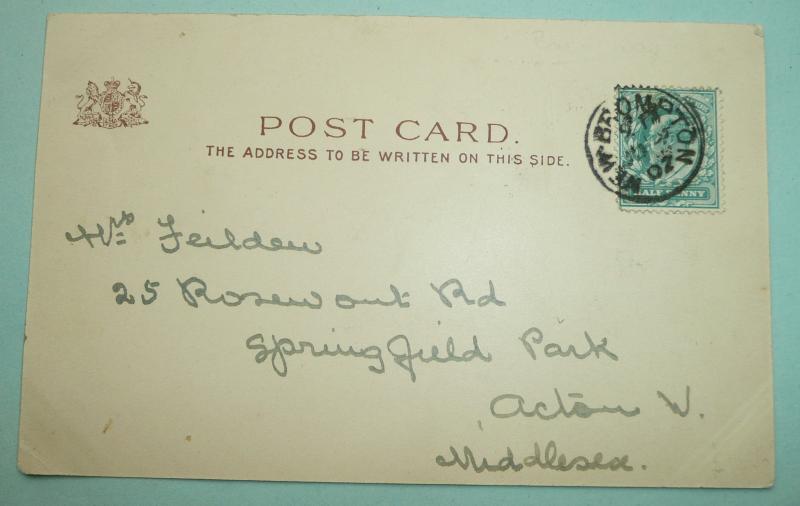 POST CARD.
THE ADDRESS TO BE WRITTEN ON THIS SIDE.
NEW BROMPTON
02
HALF PENNY
Mrs Feilden
25 Rosemont Rd
Springfield Park
Acton W.
Middlesex.